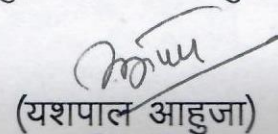 (यशपाल आहुजा)